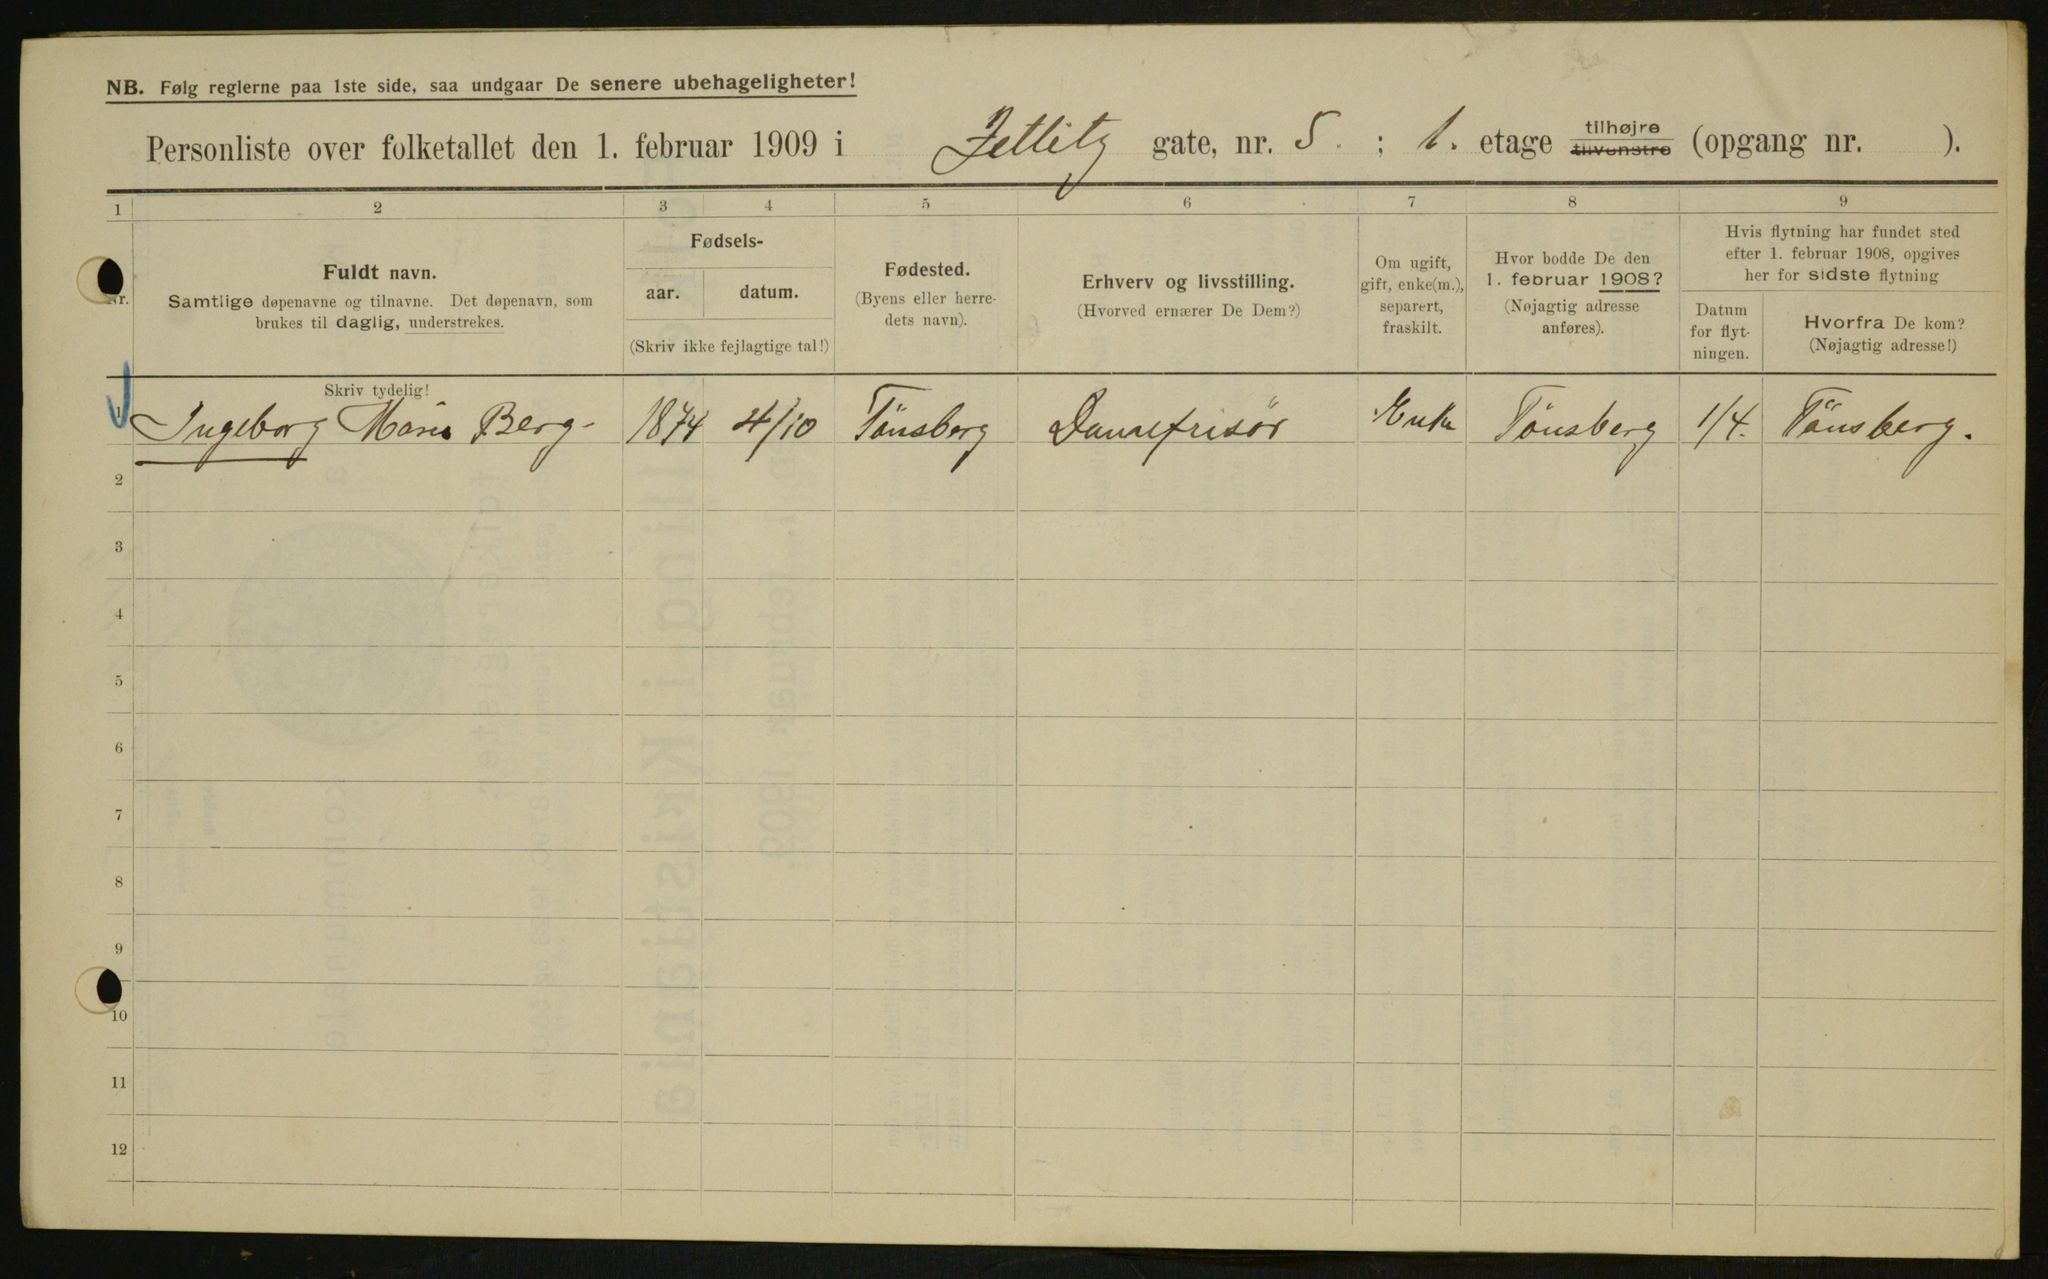 NB. Følg reglerne paa 1ste side, saa undgaar De senere ubehageligheter!
Personliste over folketallet den 1. februar 1909 i Zetlitz gate, nr. 5. ; 1. etage tilhøjre tilvenstre (opgang nr. ).
1 2 3 4 5 6 7 8 9
Nr.
Fuldt navn.
Samtlige døpenavne og tilnavne. Det døpenavn, som
brukes til daglig, understrekes.
Fødsels-
aar. datum.
(Skriv ikke fejlagtige tal!)
Fødested.
(Byens eller herre-
dets navn).
Erhverv og livsstilling.
(Hvorved ernærer De Dem?)
Om ugift,
gift, enke(m.),
separert,
fraskilt.
Hvor bodde De den
1. februar 1908?
(Nøjagtig adresse
anføres).
Hvis flytning har fundet sted
efter 1. februar 1908, opgives
her for sidste flytning
Datum
for flyt-
ningen.
Hvorfra De kom?
(Nøjagtig adresse!)
Skriv tydelig!
1 Ingeborg Marie Berg- 1874 4/10 Tönsberg Damefrisör Enke Tönsberg 1/4. Tönsberg.
2
3
4
5
6
7
8
9
10
11
12